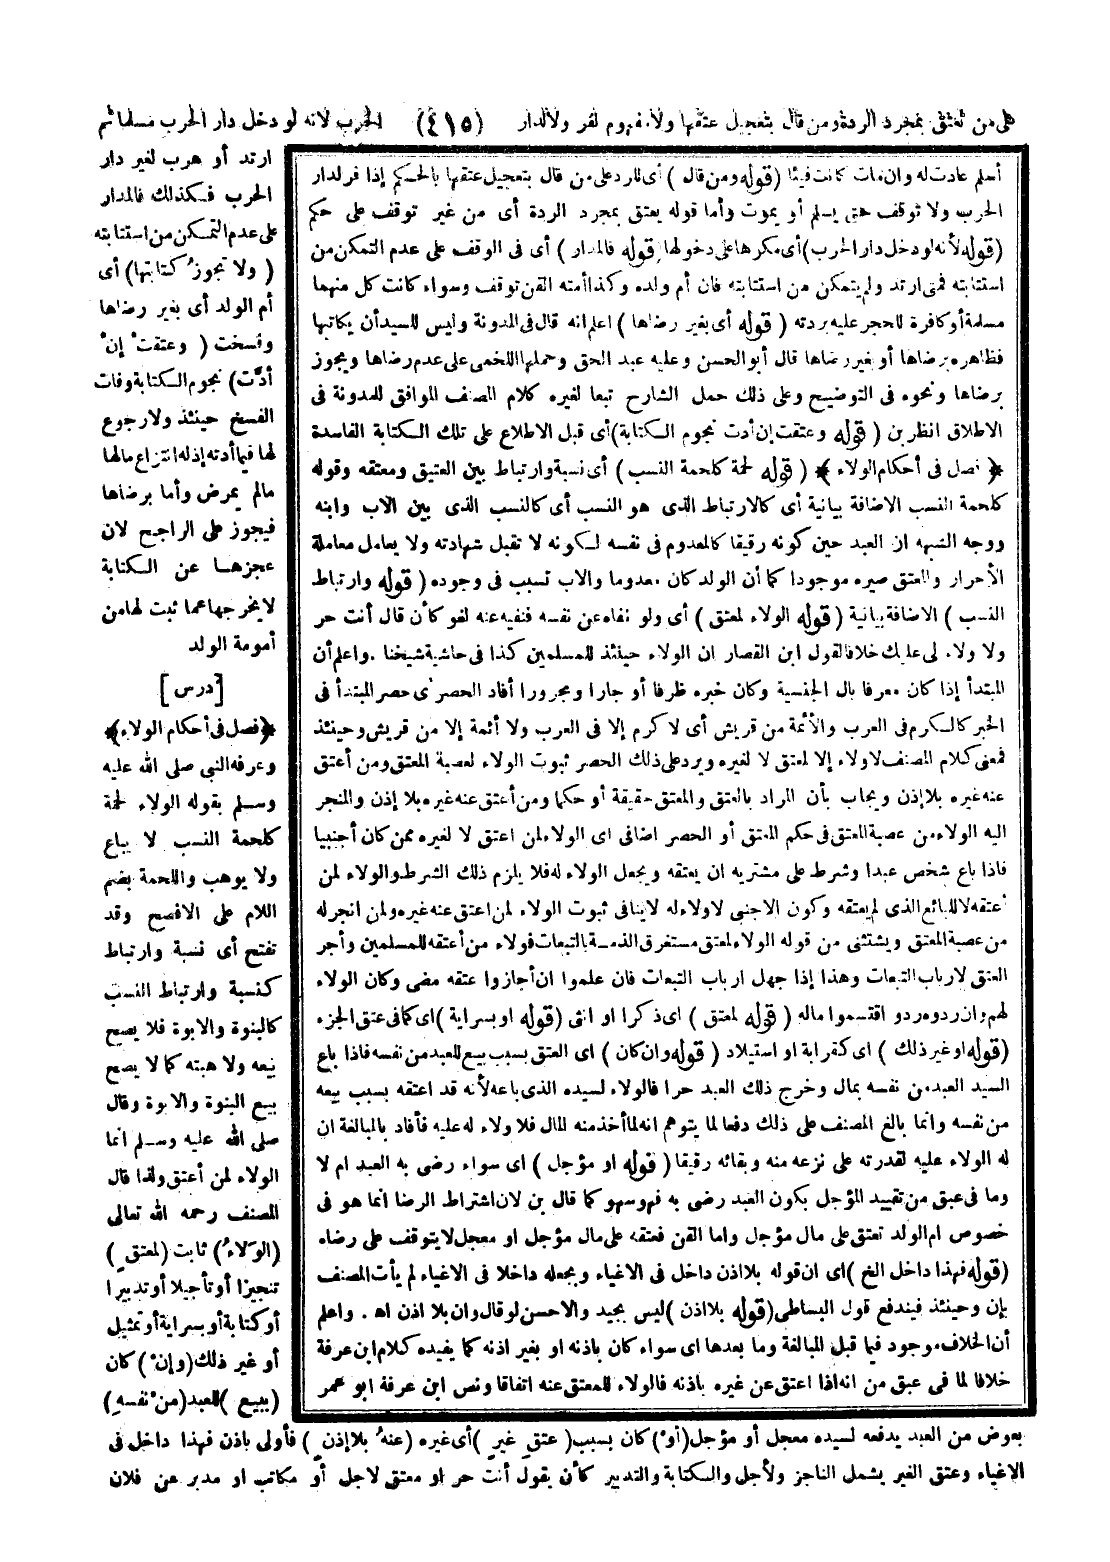 على من تعتق بمجرد الردة ومن قال بتعجيل عتقها ولا مفهوم لفر ولا لدار (٤١٥) الحرب لانه لو دخل دار الحرب مسلما ثم
ارتد أو هرب لغير دار
الحرب فكذلك فالمدار
على عدم التمكن من استتابته
(ولا تجوز كتابتها) أى
أم الولد أى بغير رضاها
وفسخت (وعتقت إن
أدَّت) نجوم الكتابة وفات
الفسخ حينئذ ولا رجوع
لها فيما أدته إذ له انتزاع مالها
مالم يمرض وأما برضاها
فيجوز على الراجح لان
عجزها عن الكتابة
لا يخرجها عما ثبت لها من
أمومة الولد
[درس]
﴿فصل فى أحكام الولاء﴾
وعرفه النبى صلى الله عليه
وسلم بقوله الولاء لحمة
كلحمة النسب لا يباع
ولا يوهب واللحمة بضم
اللام على الافصح وقد
تفتح أى نسبة وارتباط
كنسبة وارتباط النسب
كالبنوة والابوة فلا يصح
بيعه ولا هبته كما لا يصح
بيع البنوة والابوة وقال
صلى الله عليه وسلم انما
الولاء لمن أعتق ولذا قال
المصنف رحمه الله تعالى
(الوَلاءُ) ثابت (لمعتقٍ)
تنجيزا أو تأجيلا أو تدبيرا
أو كتابة أو بسراية أو تمثيل
أو غير ذلك (وإنْ) كان
(ببيع) للعبد (من نفسهِ)
بعوض من العبد يدفعه لسيده معجل أو مؤجل (أو) كان بسبب (عتقِ غيرٍ) أى غيره (عنهُ بلا إذنٍ) فأولى باذن فهذا داخل فى
الاغياء وعتق الغير يشمل الناجز ولأجل والكتابة والتدبير كأن يقول أنت حر او معتق لاجل أو مكاتب او مدبر عن فلان
أسلم عادت له وان مات كانت فيئا (قوله ومن قال) أى للرد على من قال بتعجيل عتقها بالحكم إذا فر لدار
الحرب ولا توقف حتى يسلم أو يموت وأما قوله يعتق بمجرد الردة أى من غير توقف على حكم
(قوله لأنه لو دخل دار الحرب) أى مكرها على دخولها (قوله فالمدار) أى فى الوقف على عدم التمكن من
استتابته فمتى ارتد ولم يتمكن من استتابته فان أم ولده وكذا أمته القن توقف وسواء كانت كل منهما
مسلمة أو كافرة للحجر عليه بردته (قوله أى بغير رضاها) اعلم انه قال فى المدونة وليس للسيد أن يكاتبها
فظاهره برضاها أو بغير رضاها قال أبو الحسن وعليه عبد الحق وحملها اللخمى على عدم رضاها ويجوز
برضاها ونحوه فى التوضيح وعلى ذلك حمل الشارح تبعا لغيره كلام المصنف الموافق للمدونة فى
الاطلاق انظر بن (قوله وعتقت إن أدت نجوم الكتابة) أى قبل الاطلاع على تلك الكتابة الفاسدة
﴿فصل فى أحكام الولاء﴾ (قوله لحمة كلحمة النسب) أى نسبة وارتباط بين العتيق ومعتقه وقوله
كلحمة النسب الاضافة بيانية أى كالارتباط الذى هو النسب أى كالنسب الذى بين الاب وابنه
ووجه الشبه ان العبد حين كونه رقيقا كالمعدوم فى نفسه لكونه لا تقبل شهادته ولا يعامل معاملة
الأحرار والمعتق صيره موجودا كما أن الولد كان معدوما والاب تسبب فى وجوده (قوله وارتباط
النسب) الاضافة بيانية (قوله الولاء لمعتق) أى ولو نفاه عن نفسه فنفيه عنه لغو كأن قال أنت حر
ولا ولاء لى عليك خلافا لقول ابن القصار ان الولاء حينئذ للمسلمين كذا فى حاشية شيخنا. واعلم أن
المبتدأ إذا كان معرفا بال الجنسية وكان خبره ظرفا أو جارا ومجرورا أفاد الحصر أى حصر المبتدأ فى
الخبر كالكرم فى العرب والأئمة من قريش أى لا كرم إلا فى العرب ولا أئمة إلا من قريش وحينئذ
فمعنى كلام المصنف لا ولاء إلا لمعتق لا لغيره ويرد على ذلك الحصر ثبوت الولاء لعصبة المعتق ومن أعتق
عنه غيره بلا إذن ويجاب بأن المراد بالعتق والمعتق حقيقة أو حكما ومن أعتق عنه غيره بلا إذن والمنجر
اليه الولاء من عصبة المعتق فى حكم المعتق أو الحصر اضافى اى الولاء لمن اعتق لا لغيره ممن كان أجنبيا
فاذا باع شخص عبدا وشرط على مشتريه ان يعتقه ويجعل الولاء له فلا يلزم ذلك الشرط والولاء لمن
أعتقه لا للبائع الذى لم يعتقه وكون الاجنبى لا ولاء له لا ينافى ثبوت الولاء لمن اعتق عنه غيره ولمن انجر له
من عصبة المعتق ويستثنى من قوله الولاء لمعتق مستغرق الذمة بالتبعات فولاء من أعتقه للمسلمين وأجر
العتق لارباب التبعات وهذا إذا جهل ارباب التبعات فان علموا ان أجازوا عتقه مضى وكان الولاء
لهم وان ردوه رد و اقتسموا ماله (قوله لمعتق) اى ذكرا او انثى (قوله او بسراية) اى كما فى عتق الجزء
(قوله او غير ذلك) اى كقرابة او استيلاد (قوله وان كان) اى العتق بسبب بيع للعبد من نفسه فاذا باع
السيد العبد من نفسه بمال وخرج ذلك العبد حرا فالولاء لسيده الذى باعه لأنه قد اعتقه بسبب بيعه
من نفسه وانما بالغ المصنف على ذلك دفعا لما يتوهم انه لما أخذ منه المال فلا ولاء له عليه فأفاد بالمبالغة ان
له الولاء عليه لقدرته على نزعه منه وبقائه رقيقا (قوله او مؤجل) اى سواء رضى به العبد ام لا
وما فى عبق من تقييد المؤجل بكون العبد رضى به فهو سهو كما قال بن لان اشتراط الرضا انما هو فى
خصوص ام الولد تعتق على مال مؤجل واما القن فعتقه على مال مؤجل او معجل لا يتوقف على رضاه
(قوله فهذا داخل الخ) اى ان قوله بلا اذن داخل فى الاغياء وبجعله داخلا فى الاغياء لم يأت المصنف
بإن وحينئذ فيندفع قول البساطى (قوله بلا اذن) ليس بجيد والاحسن لو قال وان بلا اذن اهـ. واعلم
أن الخلاف موجود فيما قبل المبالغة وما بعدها اى سواء كان باذنه او بغير اذنه كما يفيده كلام ابن عرفة
خلافا لما فى عبق من انه اذا اعتق عن غيره باذنه فالولاء للمعتق عنه اتفاقا ونص ابن عرفة ابو عمر